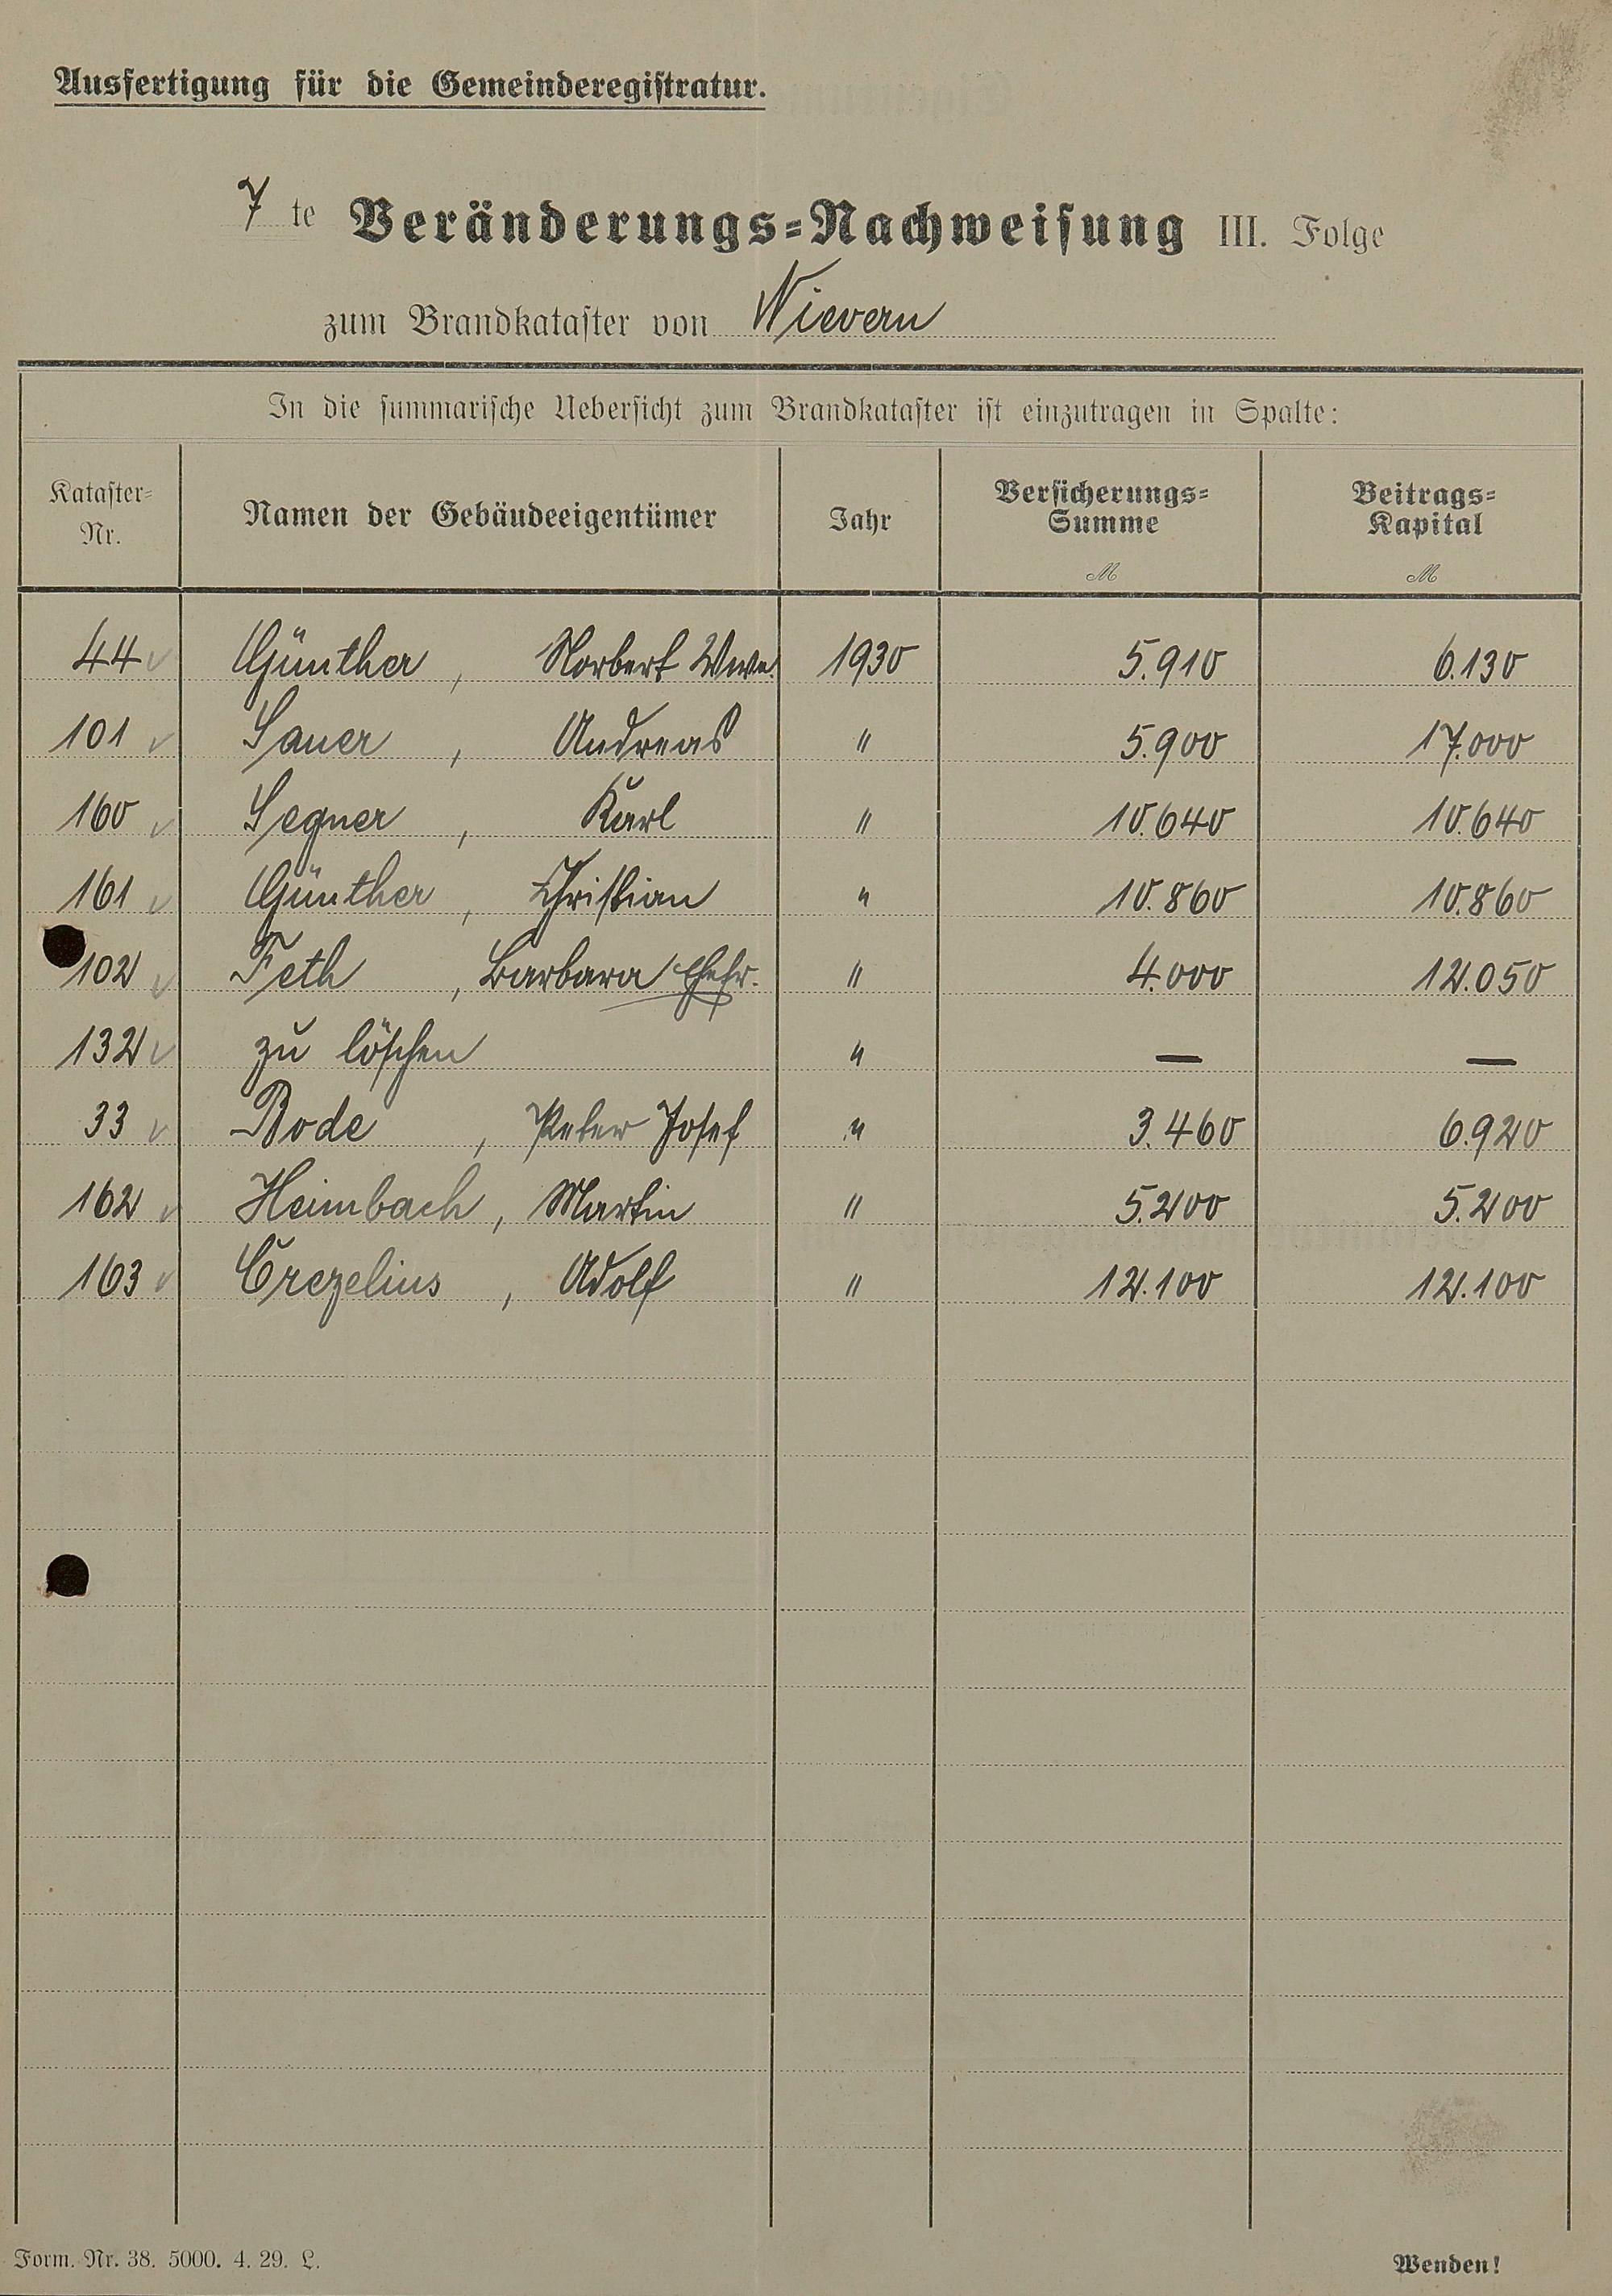 Ausfertigung für die Gemeinderegistratur.
7 te Veränderungs=Nachweisung III. Folge
zum Brandkataster von Nievern
In die summarische Uebersicht zum Brandkataster ist einzutragen in Spalte:
Kataster=
Nr.
Namen der Gebäudeeigentümer
Jahr
Versicherungs=
Summe
M
Beitrags=
Kapital
M
44 Günther, Norbert Wwe. 1930 5.910 6.130
101 Sauer, Andreas " 5.900 17.000
160 Segner, Karl " 10.640 10.640
161 Günther, Christian " 10.860 10.860
102 Feth, Barbara Ehefr. " 4.000 12.050
132 zu löschen " — —
33 Bode, Peter Josef " 3.460 6.920
162 Heimbach, Martin " 5.200 5.200
163 Crezelius, Adolf " 12.100 12.100
Form. Nr. 38. 5000. 4. 29. L.
Wenden!